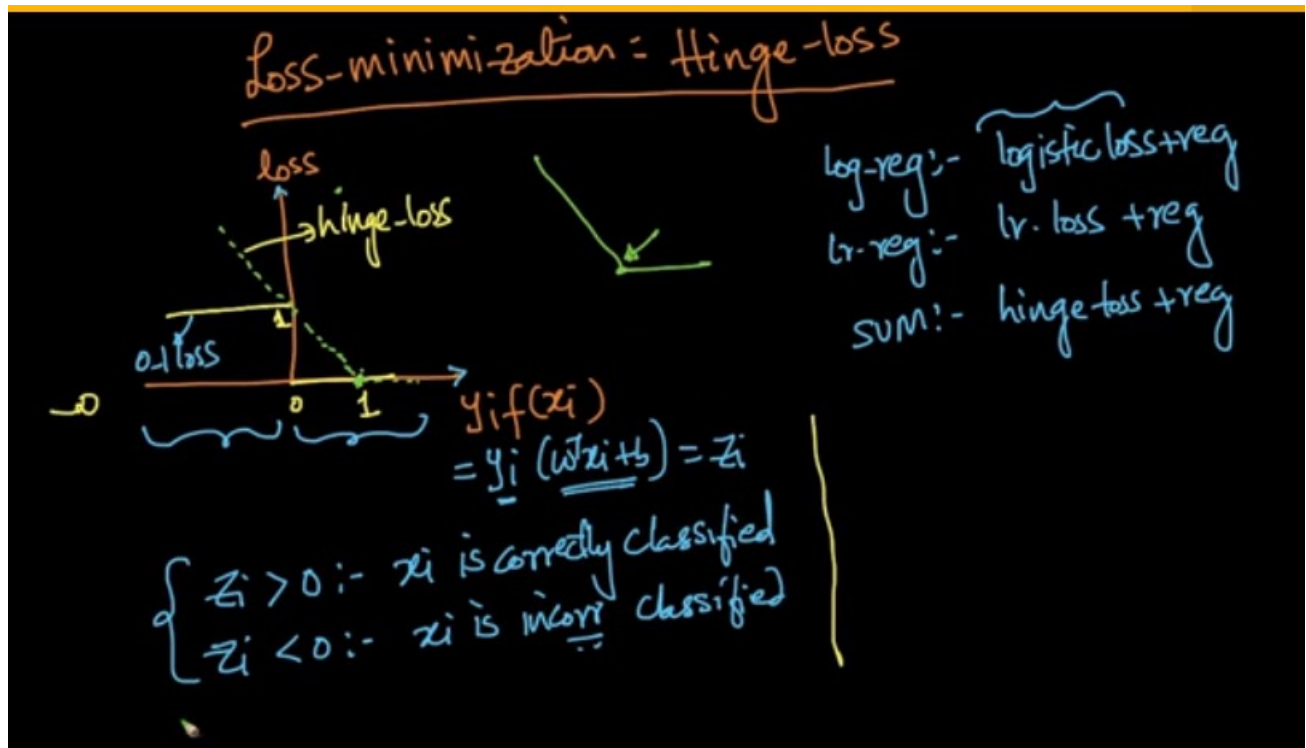 Loss-minimization = Hinge-loss
loss
hinge-loss
1
0-1 loss
0 1
yif(xi)
= yi (wᵀxi+b) = Zi
Zi > 0 :- xi is correctly classified
Zi < 0 :- xi is incorr classified
log-reg :- logistic loss + reg
lr-reg :- lr. loss + reg
SVM :- hinge loss + reg